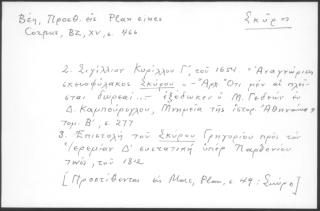 Βέη, Προσθ. εἰς Plan eines
Corpus, BZ, XV, σ. 466
Σκῦρος
2. Σιγίλλιον Κυρίλλου Γ', τοῦ 1654 - "Ἀναγνώρισις
σκευοφύλακος Σκύρου" - "Ἀρχ. Ὅτι μὲν αἱ πλεῖ-
σται δωρεαὶ..." - ἐξεδόθη ὁ Μ. Γεδεὼν ἐν
Δ. Καμπούρογλου, Μνημεῖα τῆς ἱστορ. Ἀθηναίων,
τομ. Β', σ. 277
3. Ἐπιστολὴ τοῦ Σκύρου Γρηγορίου πρὸς τὸν
Ἱερεμίαν Δ' συστατικὴ ὑπὲρ Παρθενίου
τινός, τοῦ 1812
[Προστίθενται εἰς Marc, Plan, σ. 49: Σκῦρος]